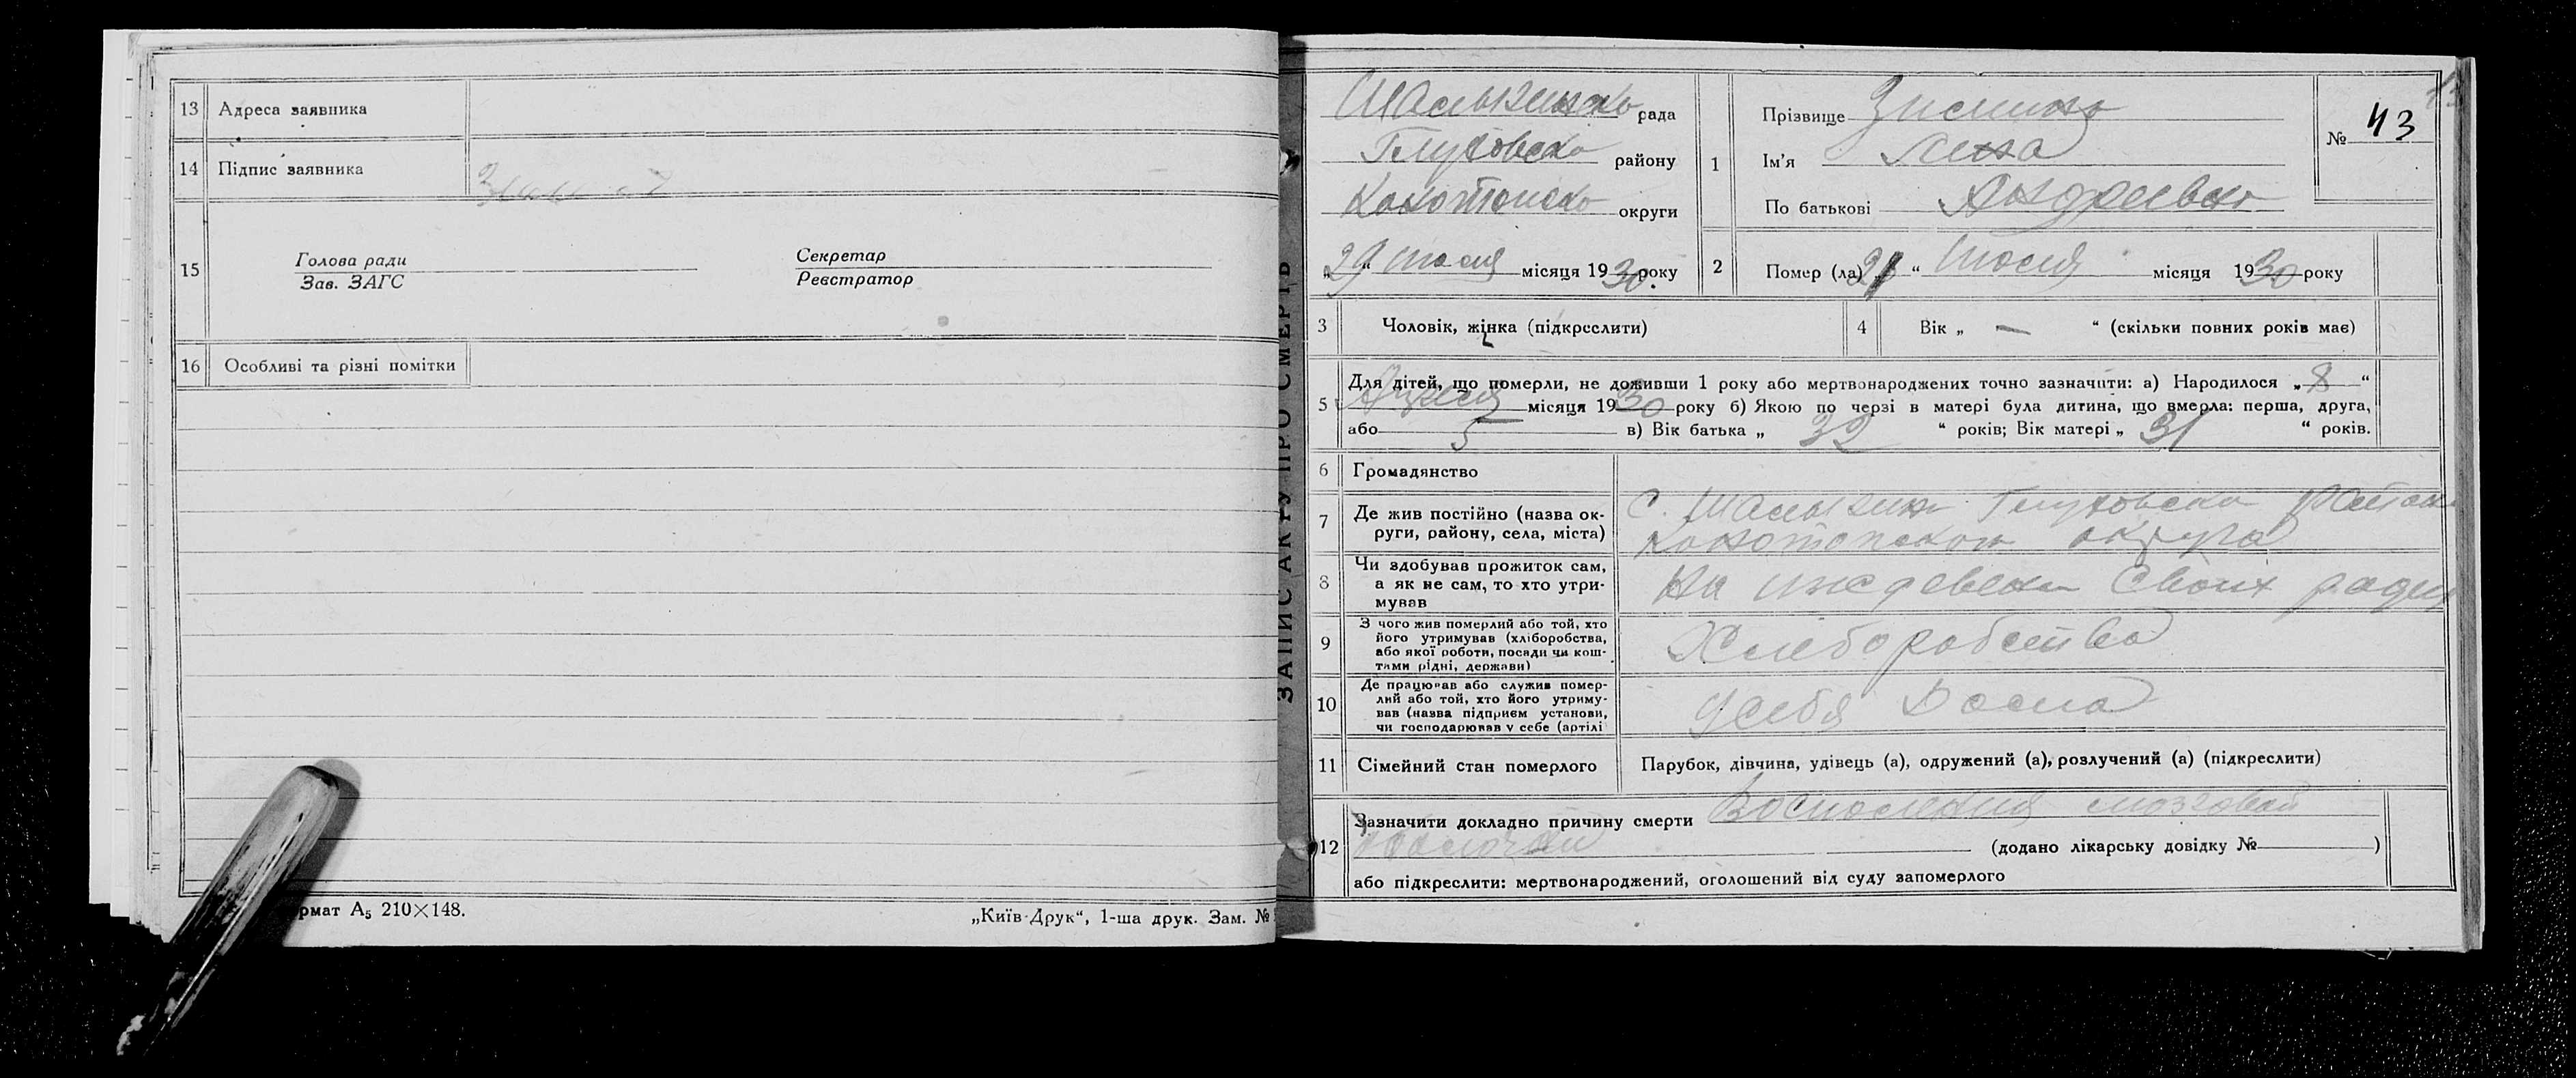 13 Адреса заявника
14 Підпис заявника
15 Голова ради
Зав. ЗАГС
Секретар
Реєстратор
16 Особливі та різні помітки
рмат А₅ 210×148.
„Київ-Друк“, 1-ша друк. Зам. №
ЗАПИС АКТУ ПРО СМЕРТЬ
рада
Глуховско району
Конотопско округи
„29“ июля місяця 1930. року
1 Прізвище
Ім'я
По батькові Андреевна
№ 43
2 Помер (ла) „ “ июля місяця 1930 року
3 Чоловік, жінка (підкреслити)
4 Вік „ — “ (скільки повних років має)
5 Для дітей, що померли, не доживши 1 року або мертвонароджених точно зазначити: а) Народилося „8“
місяця 1930 року б) Якою по черзі в матері була дитина, що вмерла: перша, друга,
або 5 в) Вік батька „ 32 “ років; Вік матері „ 31 “ років.
6 Громадянство
7 Де жив постійно (назва ок-
руги, району, села, міста)
с. Шалыгин Глуховско
Конотопской округа
8 Чи здобував прожиток сам,
а як не сам, то хто утри-
мував
На иждевени своих
9 З чого жив померлий або той, хто
його утримував (хліборобства,
або якої роботи, посади чи кош-
тами рідні, держави)
Хлеборобства
10 Де працював або служив помер-
лий або той, хто його утриму-
вав (назва підприєм установи,
чи господарював у себе (артілі
у себя Дома
11 Сімейний стан померлого
Парубок, дівчина, удівець (а), одружений (а), розлучений (а) (підкреслити)
12 Зазначити докладно причину смерти Восполения мозговой
(додано лікарську довідку № )
або підкреслити: мертвонароджений, оголошений від суду запомерлого